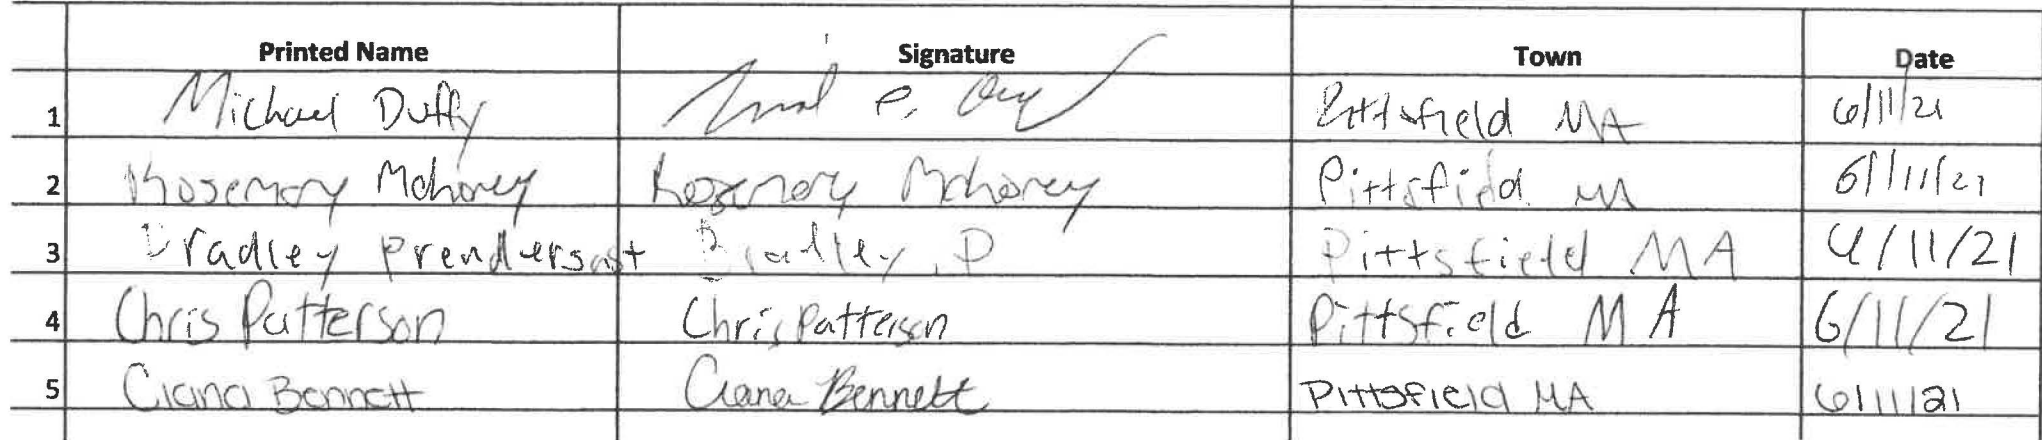 Printed Name Signature Town Date
1 Michael Duffy Pittsfield MA 6/11/21
2 Rosemary Mahoney Rosemary Mahoney Pittsfield MA 6/11/21
3 Bradley Prendergast Bradley P Pittsfield MA 6/11/21
4 Chris Patterson Chris Patterson Pittsfield MA 6/11/21
5 Ciana Bennett Ciana Bennett Pittsfield MA 6/11/21